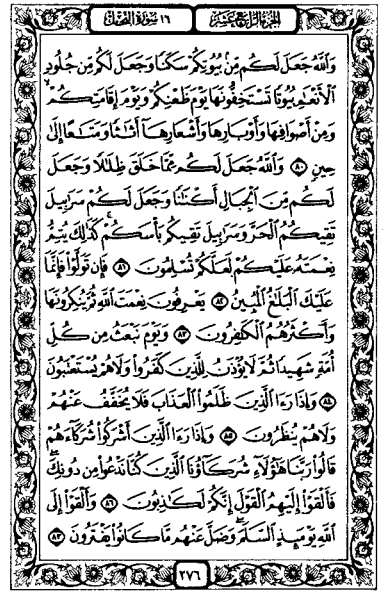 الجزء الرابع عشر ١٦ سورة النحل
وَٱللَّهُ جَعَلَ لَكُم مِّنۢ بُيُوتِكُمْ سَكَنًا وَجَعَلَ لَكُم مِّن جُلُودِ
ٱلْأَنْعَٰمِ بُيُوتًا تَسْتَخِفُّونَهَا يَوْمَ ظَعْنِكُمْ وَيَوْمَ إِقَامَتِكُمْ ۙ
وَمِنْ أَصْوَافِهَا وَأَوْبَارِهَا وَأَشْعَارِهَآ أَثَٰثًا وَمَتَٰعًا إِلَىٰ
حِينٍ ٨٠ وَٱللَّهُ جَعَلَ لَكُم مِّمَّا خَلَقَ ظِلَٰلًا وَجَعَلَ
لَكُم مِّنَ ٱلْجِبَالِ أَكْنَٰنًا وَجَعَلَ لَكُمْ سَرَٰبِيلَ
تَقِيكُمُ ٱلْحَرَّ وَسَرَٰبِيلَ تَقِيكُم بَأْسَكُمْ ۚ كَذَٰلِكَ يُتِمُّ
نِعْمَتَهُۥ عَلَيْكُمْ لَعَلَّكُمْ تُسْلِمُونَ ٨١ فَإِن تَوَلَّوْا۟ فَإِنَّمَا
عَلَيْكَ ٱلْبَلَٰغُ ٱلْمُبِينُ ٨٢ يَعْرِفُونَ نِعْمَتَ ٱللَّهِ ثُمَّ يُنكِرُونَهَا
وَأَكْثَرُهُمُ ٱلْكَٰفِرُونَ ٨٣ وَيَوْمَ نَبْعَثُ مِن كُلِّ
أُمَّةٍ شَهِيدًا ثُمَّ لَا يُؤْذَنُ لِلَّذِينَ كَفَرُوا۟ وَلَا هُمْ يُسْتَعْتَبُونَ
٨٤ وَإِذَا رَءَا ٱلَّذِينَ ظَلَمُوا۟ ٱلْعَذَابَ فَلَا يُخَفَّفُ عَنْهُمْ
وَلَا هُمْ يُنظَرُونَ ٨٥ وَإِذَا رَءَا ٱلَّذِينَ أَشْرَكُوا۟ شُرَكَآءَهُمْ
قَالُوا۟ رَبَّنَا هَٰٓؤُلَآءِ شُرَكَآؤُنَا ٱلَّذِينَ كُنَّا نَدْعُوا۟ مِن دُونِكَ ۖ
فَأَلْقَوْا۟ إِلَيْهِمُ ٱلْقَوْلَ إِنَّكُمْ لَكَٰذِبُونَ ٨٦ وَأَلْقَوْا۟ إِلَى
ٱللَّهِ يَوْمَئِذٍ ٱلسَّلَمَ ۖ وَضَلَّ عَنْهُم مَّا كَانُوا۟ يَفْتَرُونَ ٨٧
٢٧٦